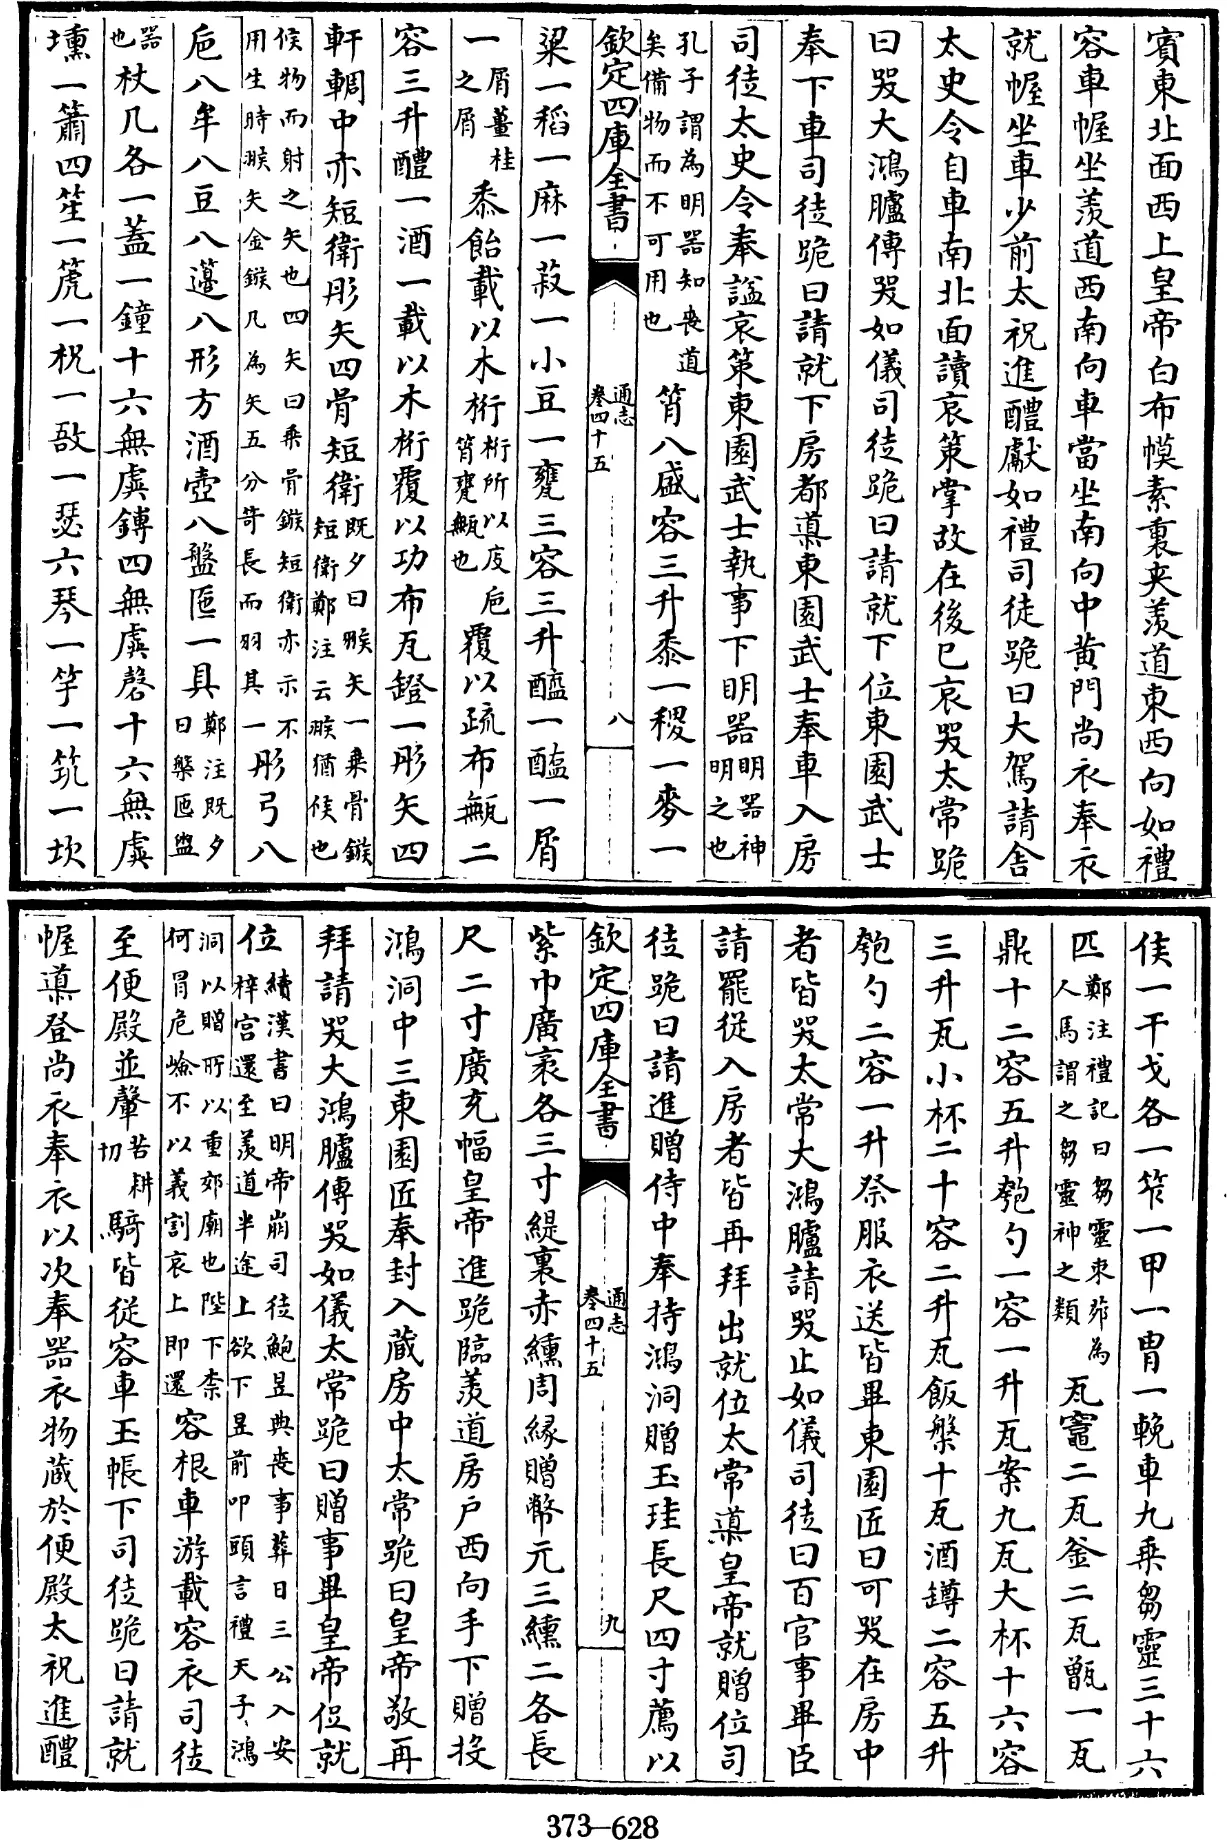 賓東北面西上皇帝白布幙素裏夾羡道東西向如禮
容車幄坐羡道西南向車當坐南向中黄門尚衣奉衣
就幄坐車少前太祝進醴獻如禮司徒跪曰大駕請舍
太史令自車南北面讀哀策掌故在後已哀哭太常跪
曰哭大鴻臚傳哭如儀司徒跪曰請就下位東園武士
奉下車司徒跪曰請就下房都導東園武士奉車入房
司徒太史令奉諡哀策東園武士執事下明器明器神明之也
孔子謂為明器知喪道矣備物而不可用也筲八盛容三升黍一稷一麥一
欽定四庫全書
通志卷四十五
八
粱一稻一麻一菽一小豆一甕三容三升醯一醢一屑
一屑薑桂之屑黍飴載以木桁桁所以庋卮筲甕甒也覆以疏布甒二
容三升醴一酒一載以木桁覆以功布瓦鐙一彤矢四
軒輖中亦短衛彤矢四骨短衛既夕曰㺅矢一乗骨鏃短衛鄭注云㺅猶侯也
侯物而射之矢也四矢曰乗骨鏃短衛亦示不用生時㺅矢金鏃凡為矢五分笴長而羽其一彤弓八
卮八牟八豆八籩八形方酒壺八盤匜一具鄭注既夕曰槃匜盥
器也杖几各一蓋一鐘十六無虡鎛四無虡磬十六無虡
壎一簫四笙一箎一柷一敔一瑟六琴一竽一筑一坎
侯一干戈各一笮一甲一胄一輓車九乗芻靈三十六
匹鄭注禮記曰芻靈束茅為人馬謂之芻靈神之類瓦竈二瓦釜二瓦甑一瓦
鼎十二容五升匏勺一容一升瓦案九瓦大杯十六容
三升瓦小杯二十容二升瓦飯槃十瓦酒罇二容五升
匏勺二容一升祭服衣送皆畢東園匠曰可哭在房中
者皆哭太常大鴻臚請哭止如儀司徒曰百官事畢臣
請罷從入房者皆再拜出就位太常導皇帝就贈位司
徒跪曰請進贈侍中奉持鴻洞贈玉珪長尺四寸薦以
欽定四庫全書
通志卷四十五
九
紫巾廣袤各三寸緹裏赤纁周縁贈幣元三纁二各長
尺二寸廣充幅皇帝進跪臨羡道房户西向手下贈投
鴻洞中三東園匠奉封入藏房中太常跪曰皇帝敬再
拜請哭大鴻臚傳哭如儀太常跪曰贈事畢皇帝促就
位續漢書曰明帝崩司徒鮑昱典喪事葬日三公入安梓宫還至羡道半途上欲下昱前叩頭言禮天子鴻
洞以贈所以重郊廟也陛下柰何冒危嶮不以義割哀上即還容根車游載容衣司徒
至便殿並鞶苦耕切騎皆從容車玉帳下司徒跪曰請就
幄導登尚衣奉衣以次奉器衣物藏於便殿太祝進醴
373—628